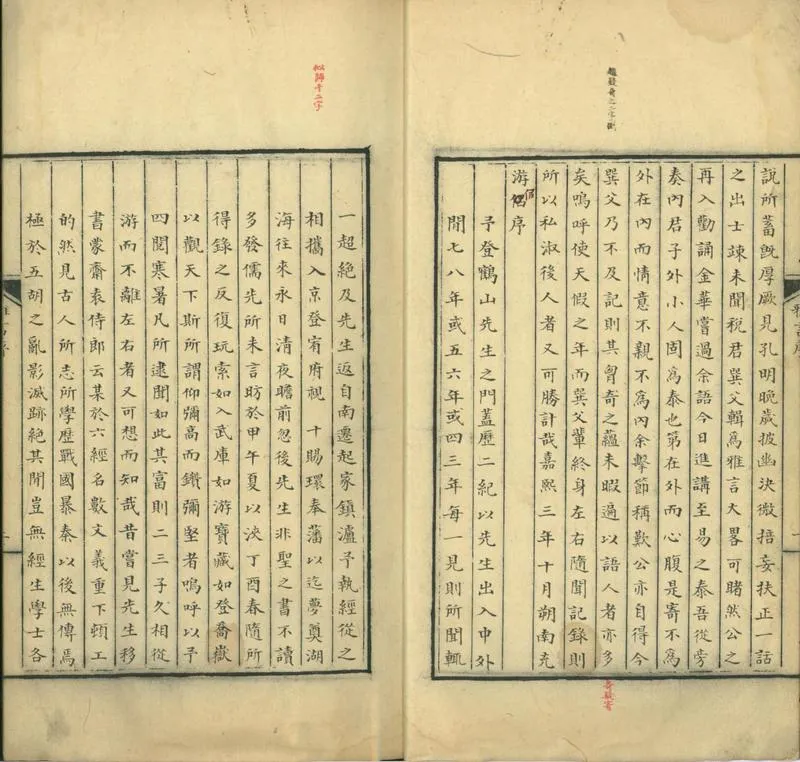 說所蓄旣厚厥見孔明晚歲披幽決微掊妄扶正一話
之出士竦未聞稅君巽父輯爲雅言大畧可睹然公之
再入勸誦金華嘗過余語今日進講至易之泰吾從旁
奏內君子外小人固爲泰也第在外而心腹是寄不爲
外在內而情意不親不爲內余擊節稱歎公亦自得今
巽父乃不及記則其胷奇之蘊未暇遍以語人者亦多
矣嗚呼使天假之年而巽父輩終身左右隨聞記錄則
所以私淑後人者又可勝計哉嘉熙三年十月朔南充
游侶序
予登鶴山先生之門蓋歷二紀以先生出入中外
閒七八年或五六年或四三年每一見則所聞輒
奇疑寄
一超絕及先生返自南遷起家鎮瀘予執經從之
相攜入京登宥府視 十賜環奉藩以迄夢奠湖
海往來永日清夜瞻前忽後先生非聖之書不讀
多發儒先所未言昉於甲午夏以浹丁酉春隨所
得錄之反復玩索如入武庫如游寶藏如登喬嶽
以觀天下斯所謂仰彌高而鑽彌堅者嗚呼以予
四閱寒暑凡所逮聞如此其富則二三子久相從
游而不離左右者又可想而知哉昔嘗見先生移
書蒙齋袁侍郎云某於六經名數文義重下頓工
的然見古人所志所學歷戰國暴秦以後無傳焉
極於五胡之亂影滅跡絕其閒豈無經生學士各